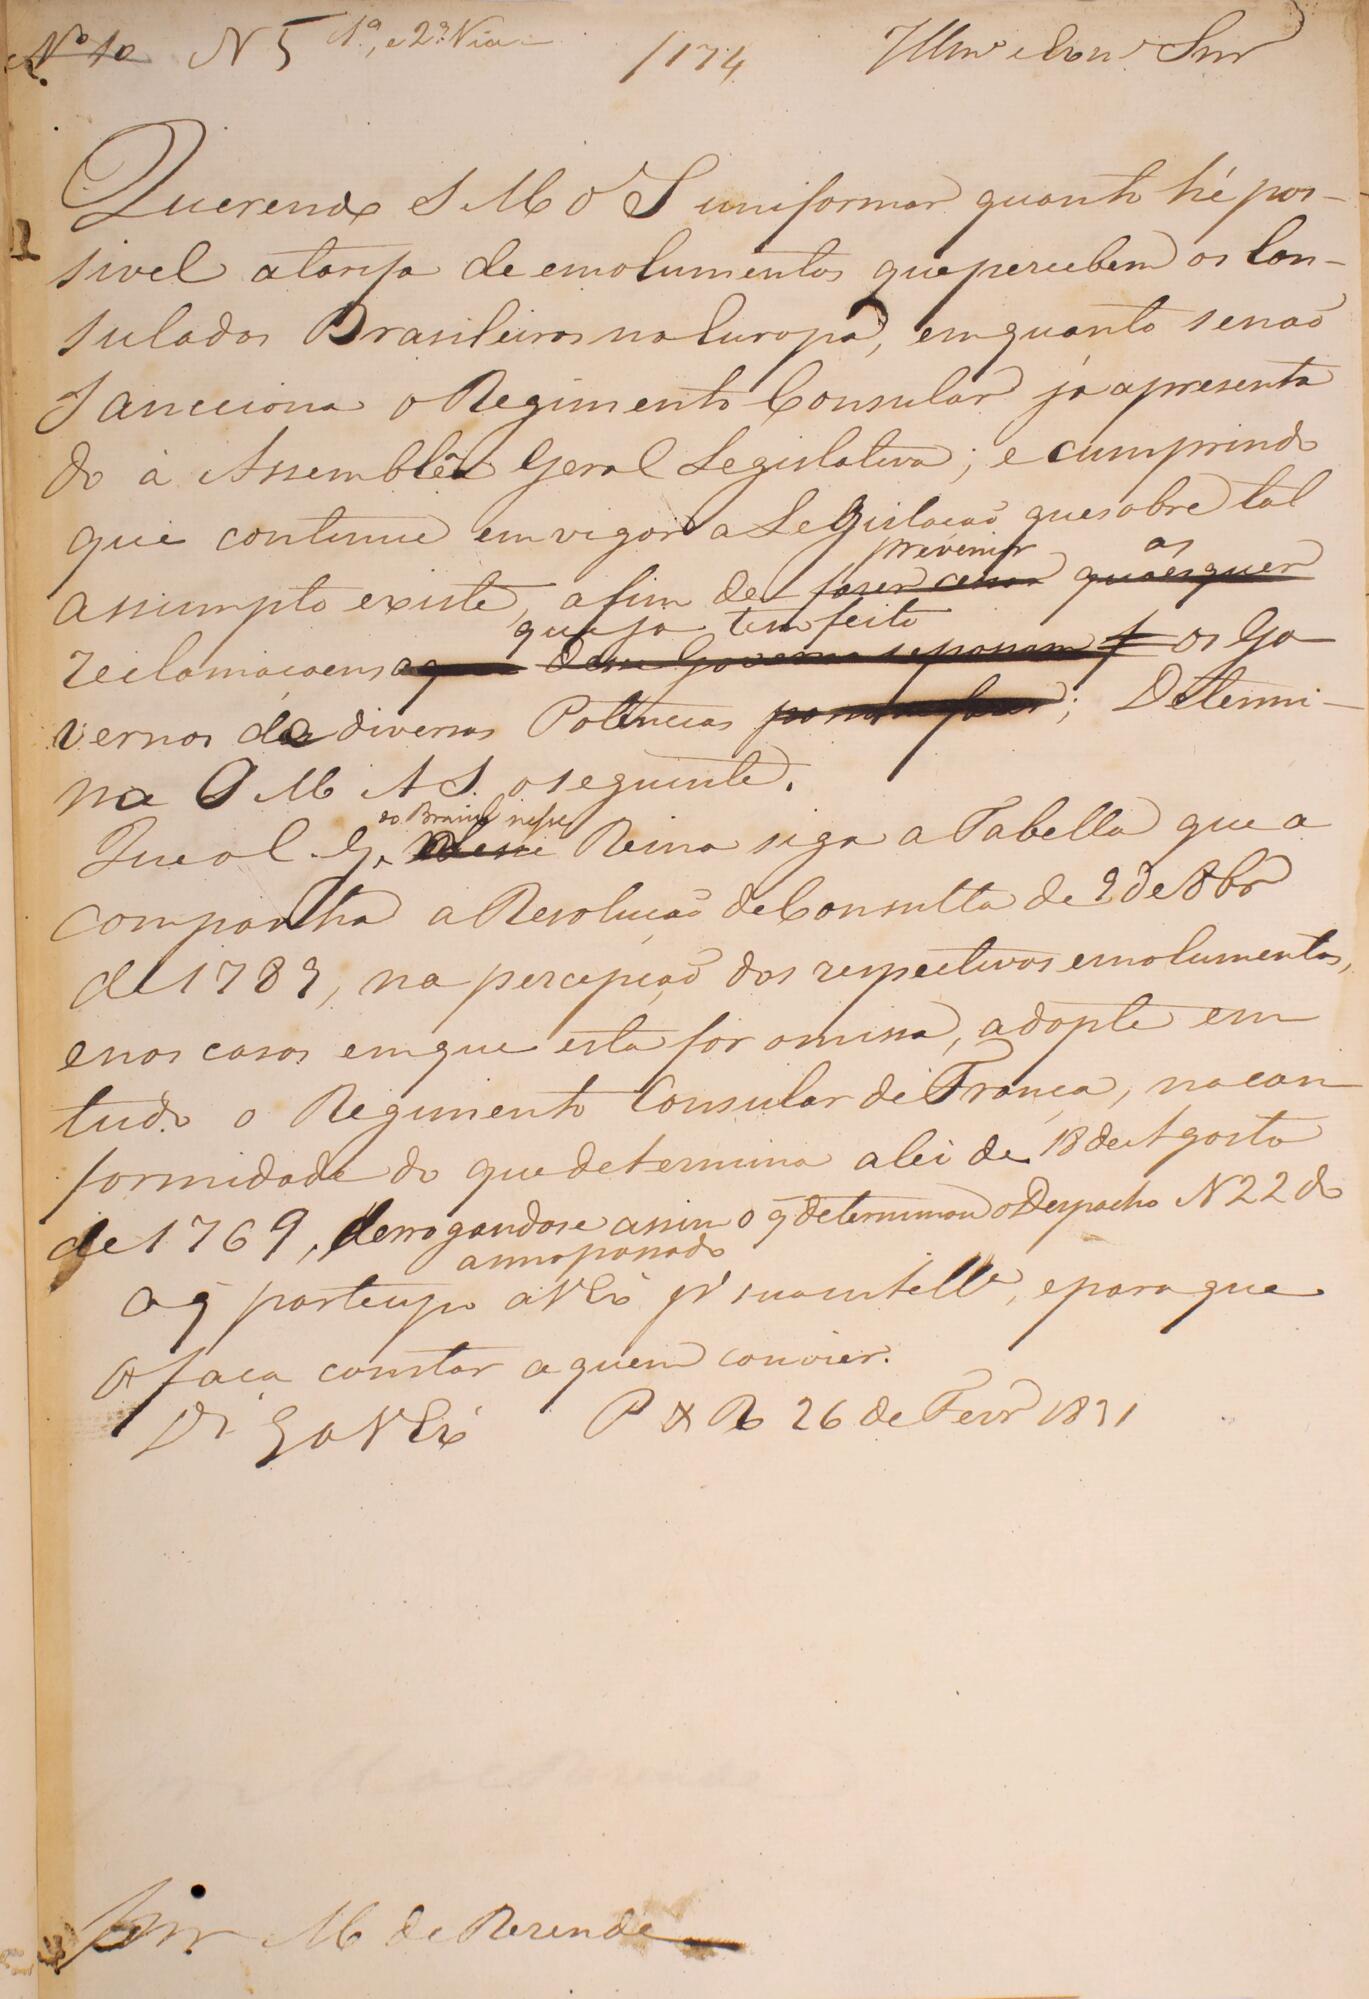 Nº 10 N 5 1ª, e 2ª Via
/174
Illmº e Exmº Snr
Querendo S M O I uniformar quanto hé pos-
sivel a tarifa de emolumentos que percebem os Con-
sulados Brasileiros na Europa, emquanto se naõ
Sancciona o Regimento Consular já apresenta
do á Assemblêa Geral Legislativa; e cumprindo
que continue em vigor a Legislacaõ que sobre tal
prevenir as
assumpto existe, afim de fazer cessar quaesquer
que ja tem feito
reclamacoens que desse Governo se possam os Go
vernos de diversas Potencias possam fazer; Determi-
na O M A S. o seguinte.
do Brasil nesse
Que o C. G. desse Reino siga a Tabella que a
companha a Resoluçaõ de Consulta de 9 de 8brº
de 1789, na percepçaõ dos respectivos emolumentos,
e nos casos em que esta for omissa, adopte em
tudo o Regimento Consular de França, na con
formidade do que determina a lei de 18 de Agosto
de 1769, derrogandose assim o q̃ determinou o Despacho N 22 do
anno passado
O q̃ participo a V Exª pª sua intellª, e para que
o faça constar a quem convier.
Dˢ Gᵉ a V Exª P do R 26 de Fevrº 1831
Snr M de Rezende